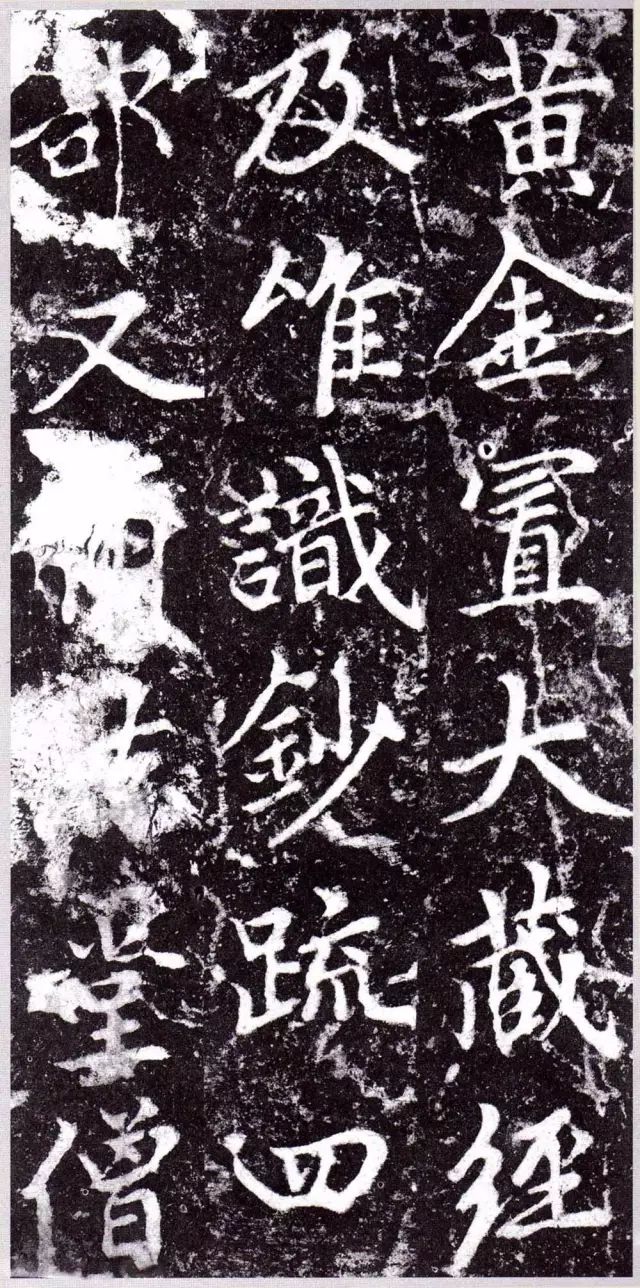 黄金置大藏經
及唯識鈔疏四
部又堂僧